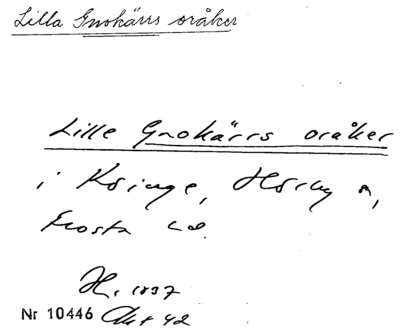 Lilla Gnokärrs oråker
Lille Gnokärrs oråker
i Köinge, Hörby sn,
Frosta hd.
H. 1837
Nr 10446 Akt 42